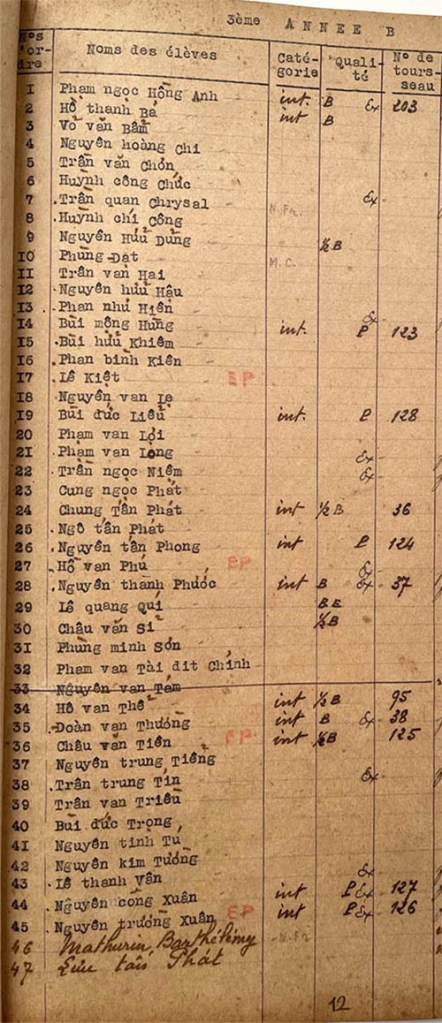 3ème ANNEE B
Nos d'ordre Noms des élèves Catégorie Qualité No de trousseau
1 Phạm ngọc Hồng Anh int. B Ex 203
2 Hồ thanh Bá int B
3 Võ văn Bẩm
4 Nguyễn hoàng Chi
5 Trần văn Chỏn
6 Huỳnh công Chức
7 Trần quan Chrysal Ex
8 Huỳnh chí Công N.Fr.
9 Nguyễn Hữu Dũng ½B
10 Phùng Đạt M.C.
11 Trần van Hai
12 Nguyễn hữu Hậu
13 Phan như Hiền
14 Bùi mộng Hùng int. Ex P 123
15 Bùi hữu Khiêm
16 Phan bình Kiên
17 Lê Kiệt EP
18 Nguyễn van Lẹ
19 Bùi đức Liễu int. P 128
20 Phạm van Lợi
21 Phạm van Long Ex
22 Trần ngọc Niệm Ex
23 Cung ngọc Phát
24 Chung Tấn Phát int ½B 36
25 Ngô tấn Phát
26 Nguyễn tấn Phong int P 124
27 Hồ van Phú EP
28 Nguyễn thành Phước int B Ex 37
29 Lê quang Quí BE
30 Châu văn Sĩ ½B
31 Phùng minh Sơn
32 Phạm van Tài dit Chính
33 Nguyễn van Tám
34 Hồ van Thế int ½B 95
35 Đoàn van Thưởng int B Ex 38
36 Châu văn Tiên EP int ½B 125
37 Nguyễn trung Tiếng
38 Trần trung Tín Ex
39 Trần van Triều
40 Bùi đức Trọng
41 Nguyễn tinh Tú
42 Nguyễn kim Tường
43 Lê thanh Vân Ex
44 Nguyễn công Xuân int P Ex 127
45 Nguyễn trường Xuân EP int P Ex 126
46 Mathurin Barthélémy N.Fr.
47 Lưu tấn Phát
12